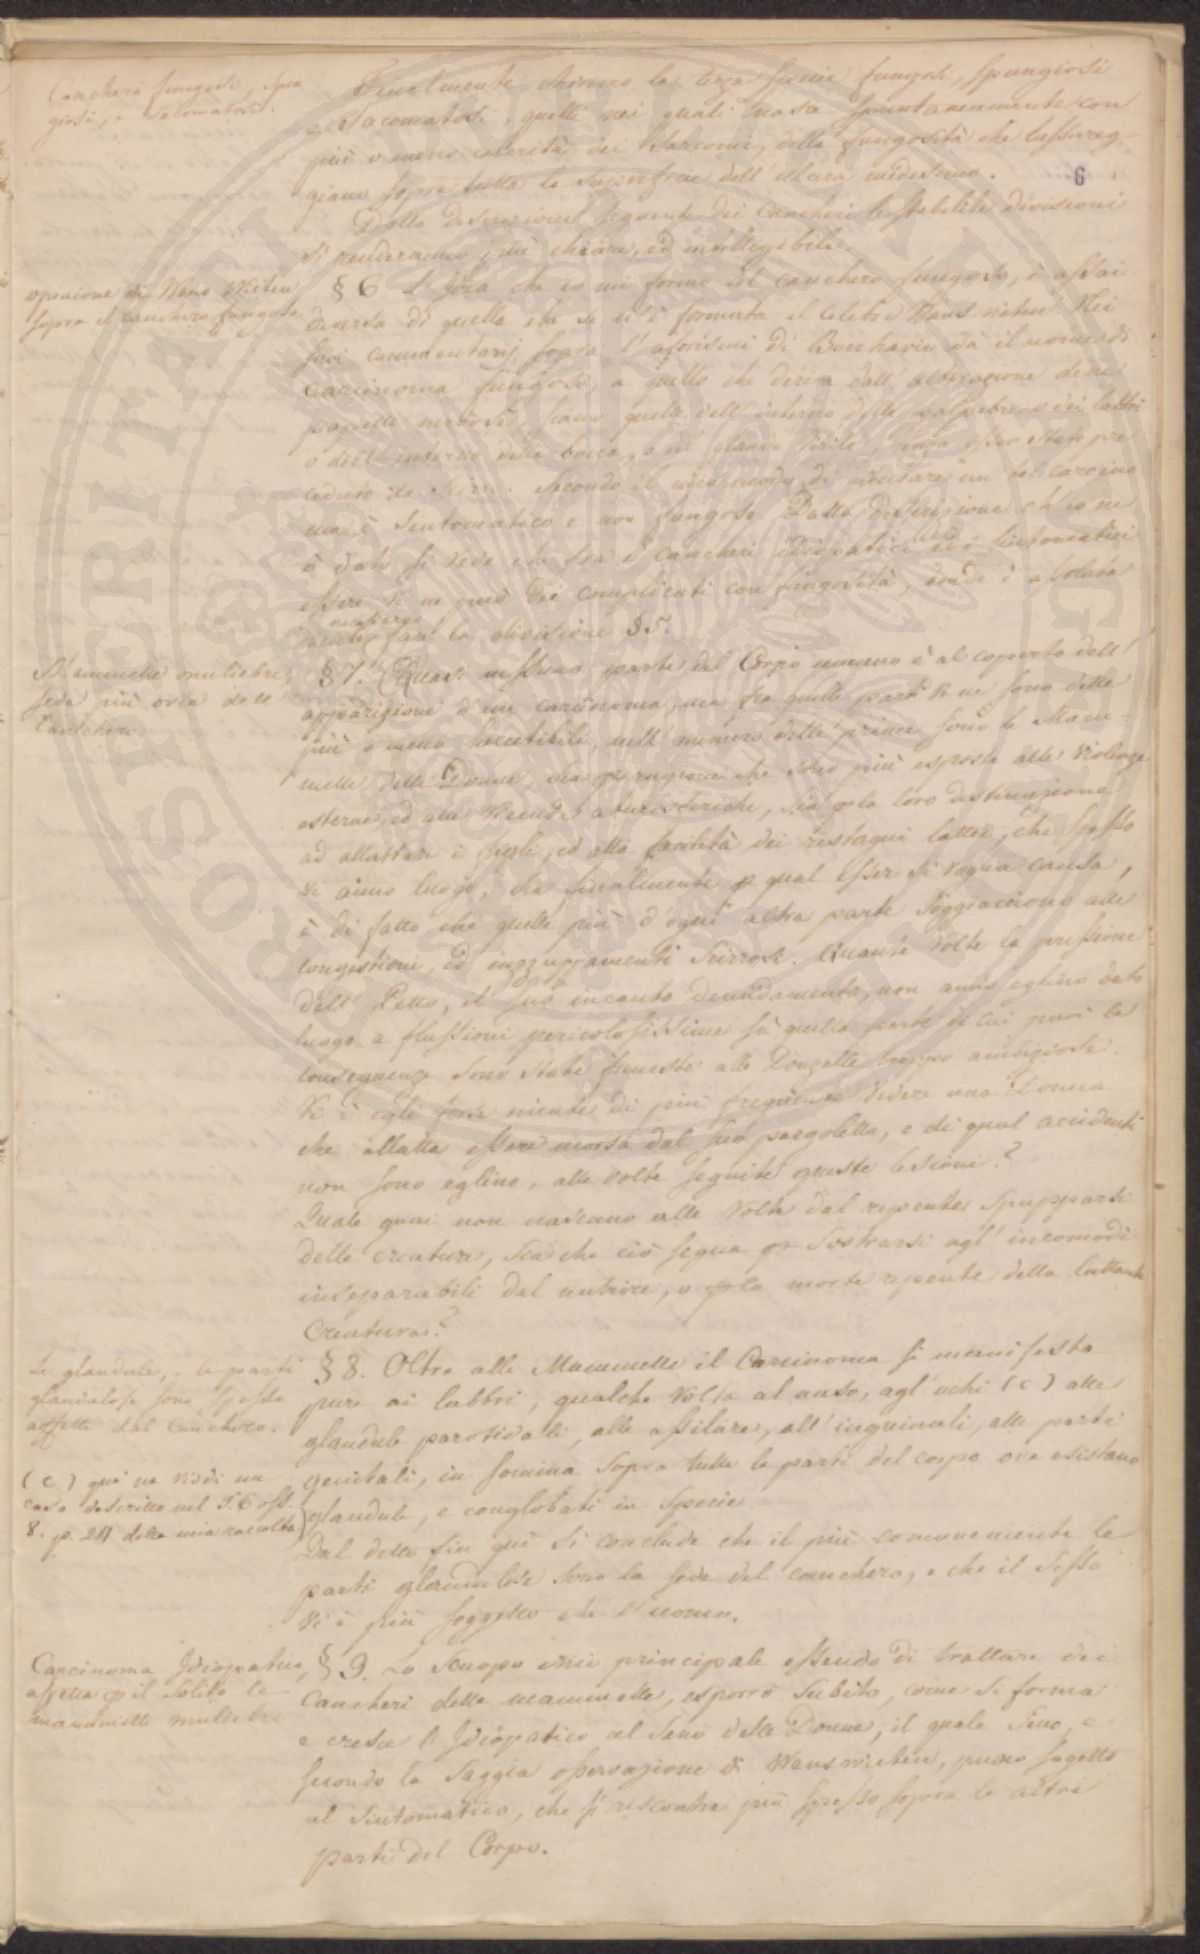 Cancheri fungosi, spon
giosi, e Sacomatosi.
Finalmente chiamo la terza specie fungosi, Spungiosi
e Sacomatosi quelli nei quali nasce spontaneamente con
più o meno celerità dei Sarcomi, delle fungosità che lussureg-
giano sopra tutta la Superficie dell' ulcera medesima.
6
Dalla descrizione seguente dei Cancheri le stabilite divisioni
si renderanno più chiare, ed intelligibili.
opinione di Wans Wieten
sopra il canchero fungoso
§ 6 L'Idea che io mi formo del canchero fungoso, è assai
diversa di quella che se n'è formata il Celebre Wans wieten Nei
suoi commentarj sopra l'aforismi di Boerhavie dà il nome di
Carcinoma fungoso, a quello che deriva dall' alterazione delle
papille nervose, siano quelle dell' interno delle palpebre, dei labbri
o dell' interno della bocca, o del glande Virile, senza esser stato pre
ceduto da Scirro. Secondo il mio modo di pensare un tal carcino
ma è Sintomatico e non fungoso. Dalla descrizione ch'io ne
ò dato si vede che fra i cancheri Idiopatici ed i Sintomatici
essere ve ne può dei complicati con fungosità, onde è assoluta
mente necessaria la divisione § 5.
Mammelle muliebri
sede più ovia dell'
Canchero.
§ 7. Quasi nessuna parte del Corpo umano è al coperto dell'
apparizione d'un carcinoma, ma fra quelle parti ve ne sono delle
più o meno suscetibili, nell numero delle prime sono le Mam-
melle delle Donne, sia p ragione che sono più esposte alle Violenze
esterne, ed alle Vicende atmosferiche, sia p la loro destinazione
ad allattare i figli, ed alla facilità dei ristagni lattei, che spesso
vi anno luogo; sia finalmente p qual esser si voglia causa,
è di fatto che quelle più d'ogni altra parte soggiacciono alle
congestioni, ed inzuppamenti Scirrosi. Quante Volte la pressione
dell' Petto, il suo incauto denudamento, non anno eglino dato
luogo a flussioni pericolosissime sù quella parte di cui poi le
conseguenze sono state funeste alle Donzelle troppo ambiziose.
Vi è egli forse niente di più frequente Vedere una Donna
che allatta essere morsa dal suo pargoletto, e di qual accidenti
non sono eglino, alle volte seguite queste lesioni?
Quale guai non nascono alle Volte dal repente Spupparsi
delle creature, sia che ciò segua p sostrarsi agl' incomodi
inseparabili dal nutrire, o p la morte repente della lattante
Creatura?
Le glandule, e le parti
glandulose sono spesso
affette dal Canchero.
§ 8. Oltre alle Mammelle il Carcinoma si manifesta
pure ai labbri, qualche Volta al naso, agl' ochi (c) alle
glandule parotidali, alle assilari, all' inguinali, alle parti
genitali, in somma sopra tutte le parti del corpo ove esistano
glandule, e conglobati in Specie.
(c) qui ne viddi un
caso descritto nel T. 6 oss.
8. p. 211 della mia racolta
Dal detto fin quì si conclude che il più comunemente le
parti glandulose sono la sede del canchero, e che il Sesso
vi è più soggetto che l'uomo.
Carcinoma Idiopatico,
affetta p il solito le
mammelle muliebri
§ 9. Lo Scuopo mio principale essendo di trattare dei
Cancheri delle mammelle, esporrò Subito, come si forma
e cresce l'Idiopatico al Seno delle Donne, il quale Seno, e
secondo la Saggia osservazione di Wans wieten, meno sogetto
al Sintomatico, che si riscontra più spesso sopra le altre
parti del Corpo.